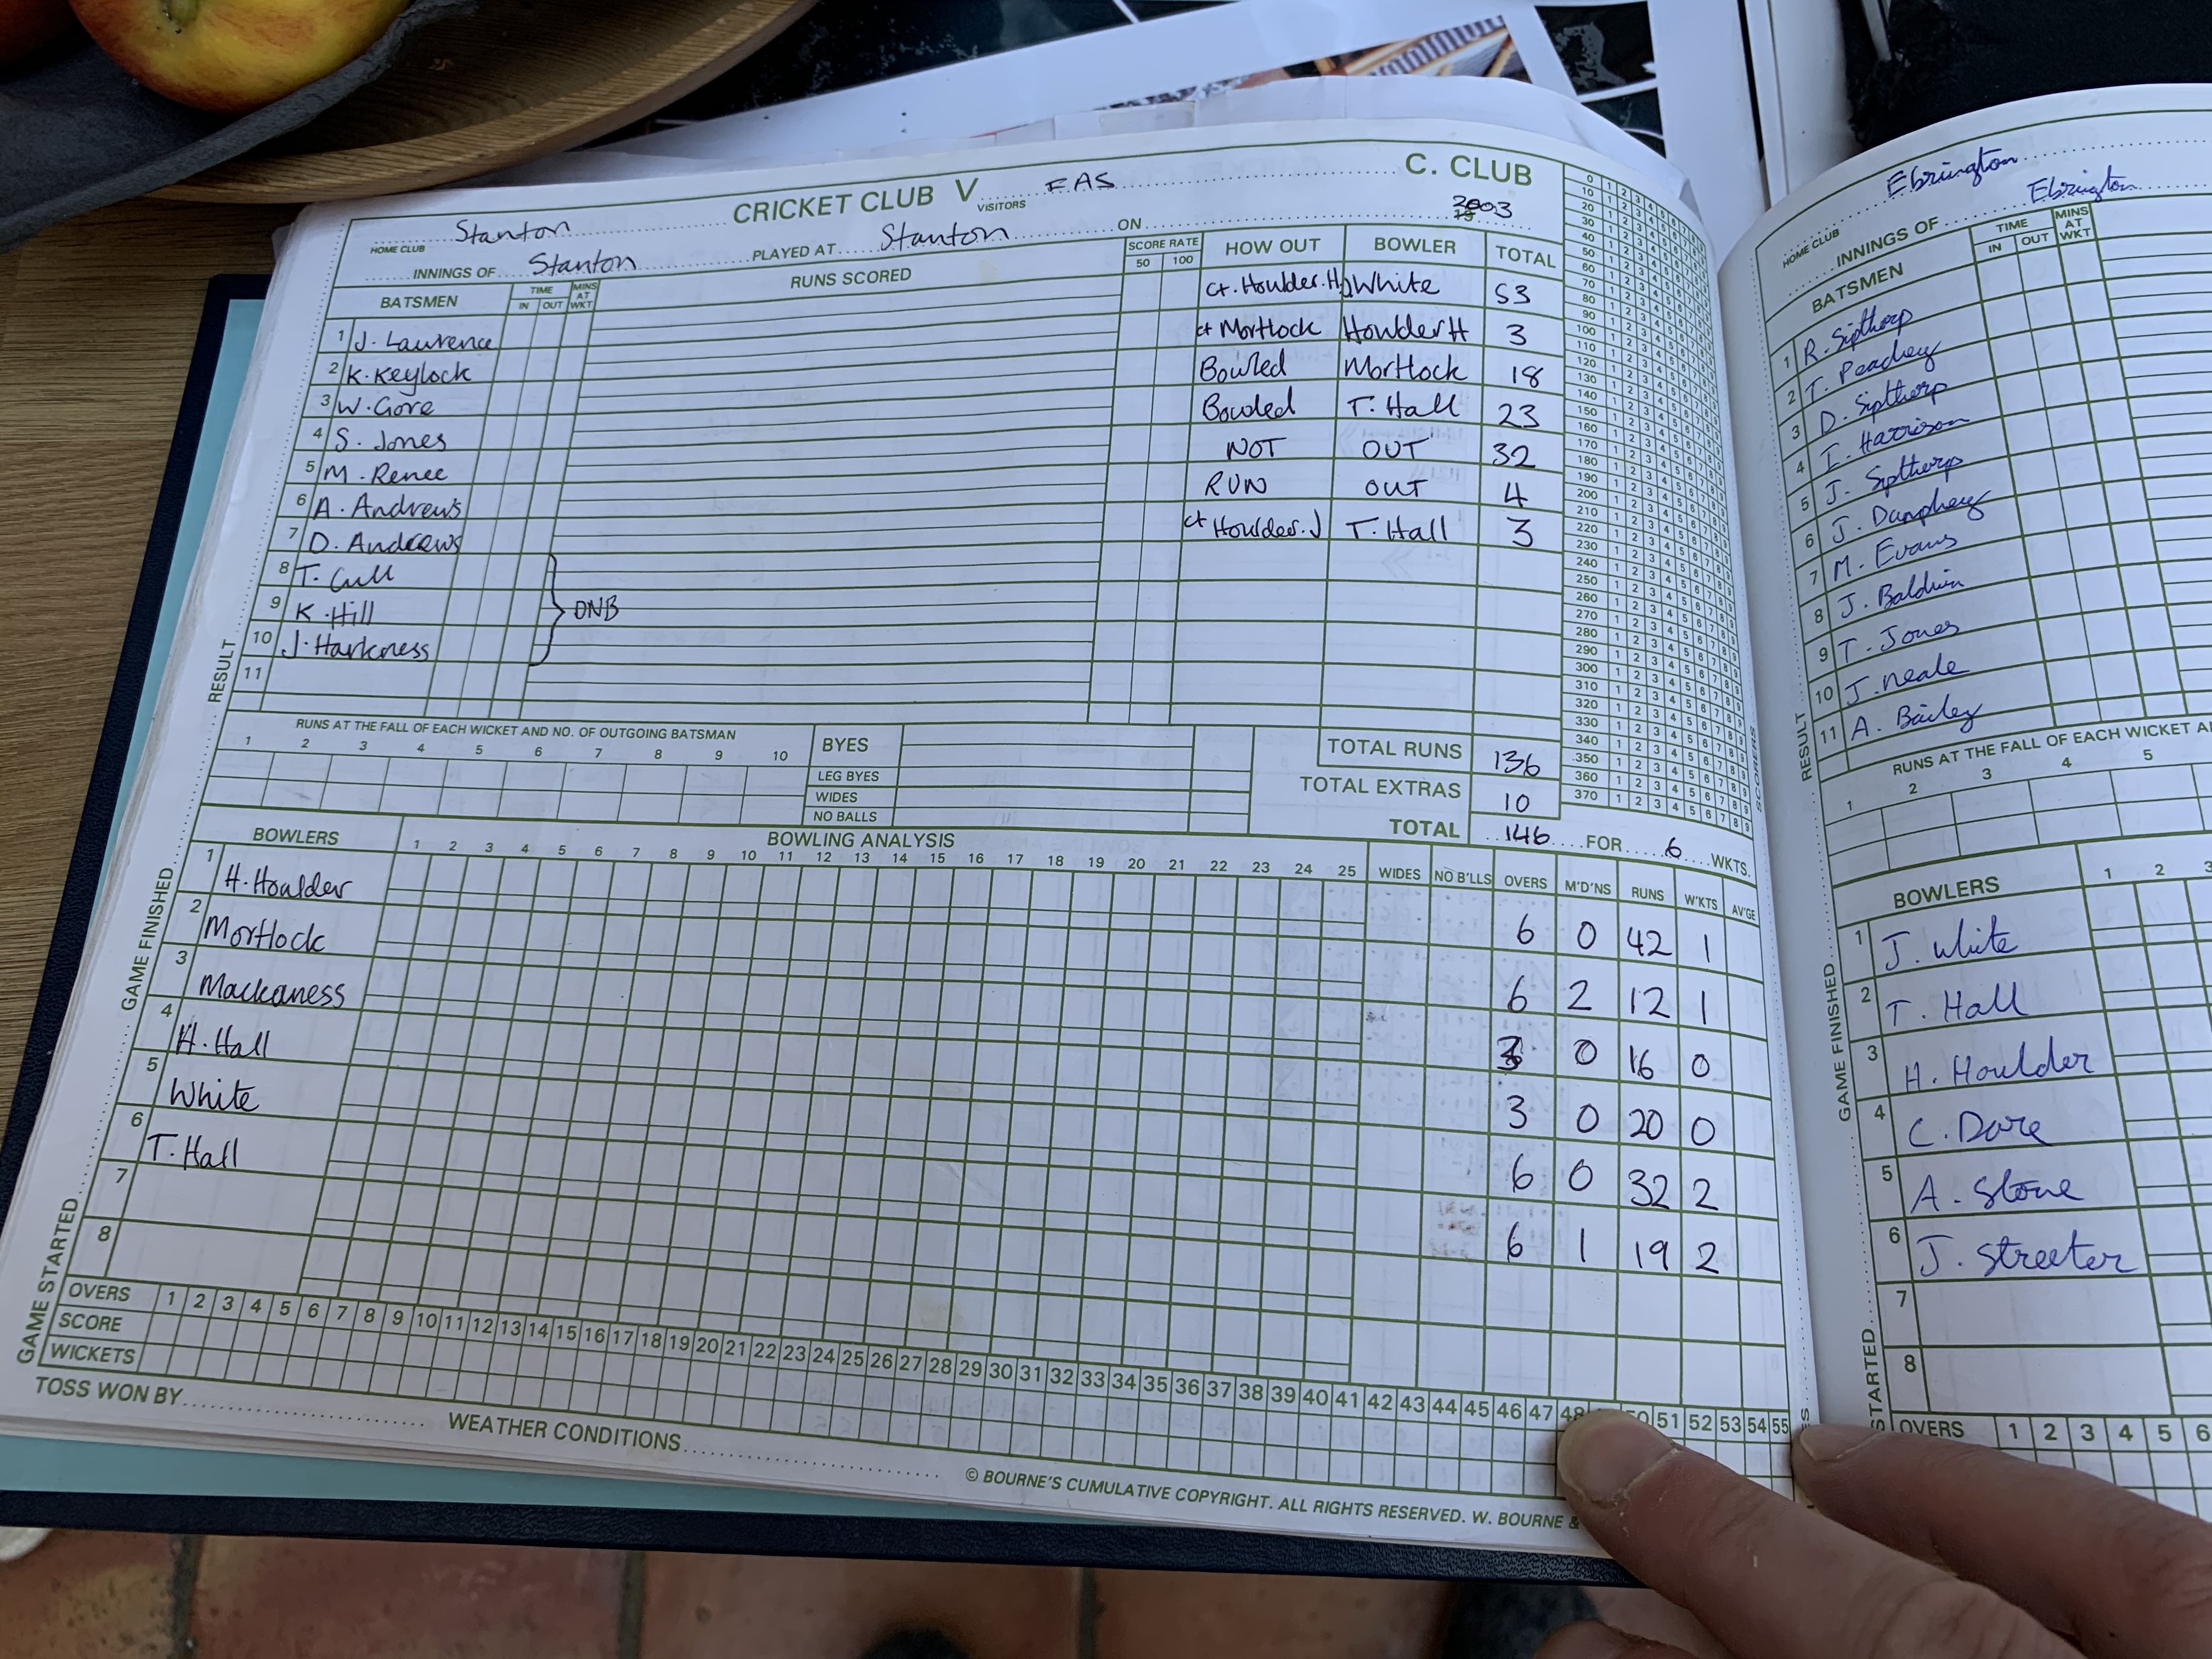 CRICKET CLUB V VISITORS FAS C. CLUB
HOME CLUB Stanton PLAYED AT Stanton ON 2003
INNINGS OF Stanton
BATSMEN TIME IN OUT MINS AT WKT RUNS SCORED SCORE RATE 50 100 HOW OUT BOWLER TOTAL
1 J. Lawrence ct. Houlder. H White 53
2 K. Keylock ct Mortlock Houlder H 3
3 W. Gore Bowled Mortlock 18
4 S. Jones Bowled T. Hall 23
5 M. Renee NOT OUT 32
6 A. Andrews RUN OUT 4
7 D. Andrews ct Houlder. J T. Hall 3
8 T. Cull
9 K. Hill DNB
10 J. Harkness
11
RESULT
RUNS AT THE FALL OF EACH WICKET AND NO. OF OUTGOING BATSMAN
1 2 3 4 5 6 7 8 9 10
BYES
LEG BYES
WIDES
NO BALLS
TOTAL RUNS 136
TOTAL EXTRAS 10
TOTAL 146 FOR 6 WKTS.
BOWLERS BOWLING ANALYSIS
1 2 3 4 5 6 7 8 9 10 11 12 13 14 15 16 17 18 19 20 21 22 23 24 25 WIDES NO B'LLS OVERS M'D'NS RUNS W'KTS AV'GE
1 H. Houlder 6 0 42 1
2 Mortlock 6 2 12 1
3 Mackaness 3 0 16 0
4 H. Hall 3 0 20 0
5 White 6 0 32 2
6 T. Hall 6 1 19 2
7
8
GAME FINISHED
GAME STARTED
OVERS 1 2 3 4 5 6 7 8 9 10 11 12 13 14 15 16 17 18 19 20 21 22 23 24 25 26 27 28 29 30 31 32 33 34 35 36 37 38 39 40 41 42 43 44 45 46 47 48 50 51 52 53 54 55
SCORE
WICKETS
TOSS WON BY
WEATHER CONDITIONS
© BOURNE'S CUMULATIVE COPYRIGHT. ALL RIGHTS RESERVED. W. BOURNE &
SCORERS
HOME CLUB Ebrington
INNINGS OF Ebrington
BATSMEN TIME IN OUT MINS AT WKT
1 R. Sipthorp
2 T. Peachey
3 D. Sipthorp
4 I. Harrison
5 J. Sipthorp
6 J. Dumphey
7 M. Evans
8 J. Baldwin
9 T. Jones
10 J. neale
11 A. Bailey
RESULT
RUNS AT THE FALL OF EACH WICKET
1 2 3 4 5
BOWLERS 1 2 3
1 J. White
2 T. Hall
3 H. Houlder
4 C. Dare
5 A. Stone
6 J. Streeter
7
8
GAME FINISHED
STARTED
OVERS 1 2 3 4 5 6